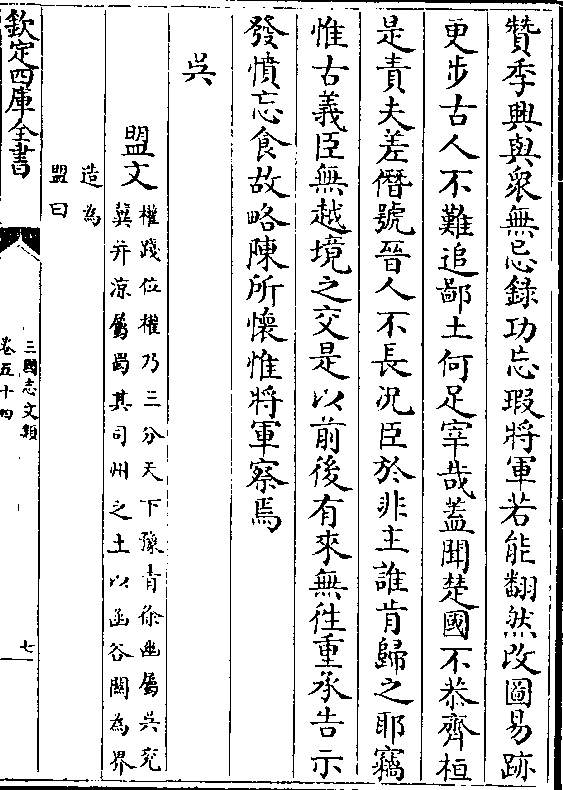 贊季興與衆無忌錄功忘瑕將軍若能翻然改圖易跡
更步古人不難追鄙土何足宰哉蓋聞楚國不恭齊桓
是責夫差僭號晉人不長況臣於非主誰肯歸之耶竊
惟古義臣無越境之交是以前後有來無徃重承告示
發憤忘食故略陳所懷惟將軍察焉
吳
盟文
權踐位權乃三分天下豫青徐幽屬吳兖
冀并涼屬蜀其司州之土以函谷關為界
造為
盟曰
欽定四庫全書
三國志文類
卷五十四
七